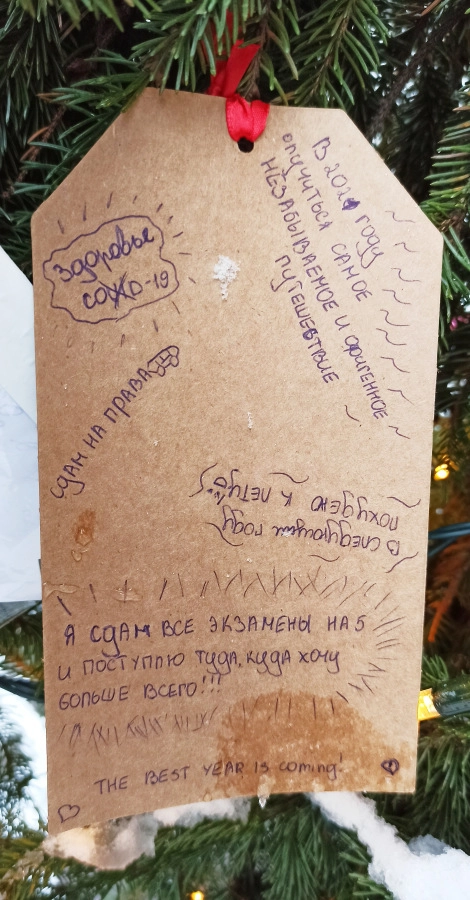 В 2021 году
опуститься самое
НЕЗАБЫВАЕМОЕ И офигенное
ПУТЕШЕВТВИЕ
Здоровье
COVID-19
СДАМ НА ПРАВА
В следующем году
похудею к лету
Я СДАМ ВСЕ ЭКЗАМЕНЫ НА 5
И ПОСТУПЛЮ ТУДА, КУДА ХОЧУ
БОЛЬШЕ ВСЕГО!!!
THE BEST YEAR IS coming!